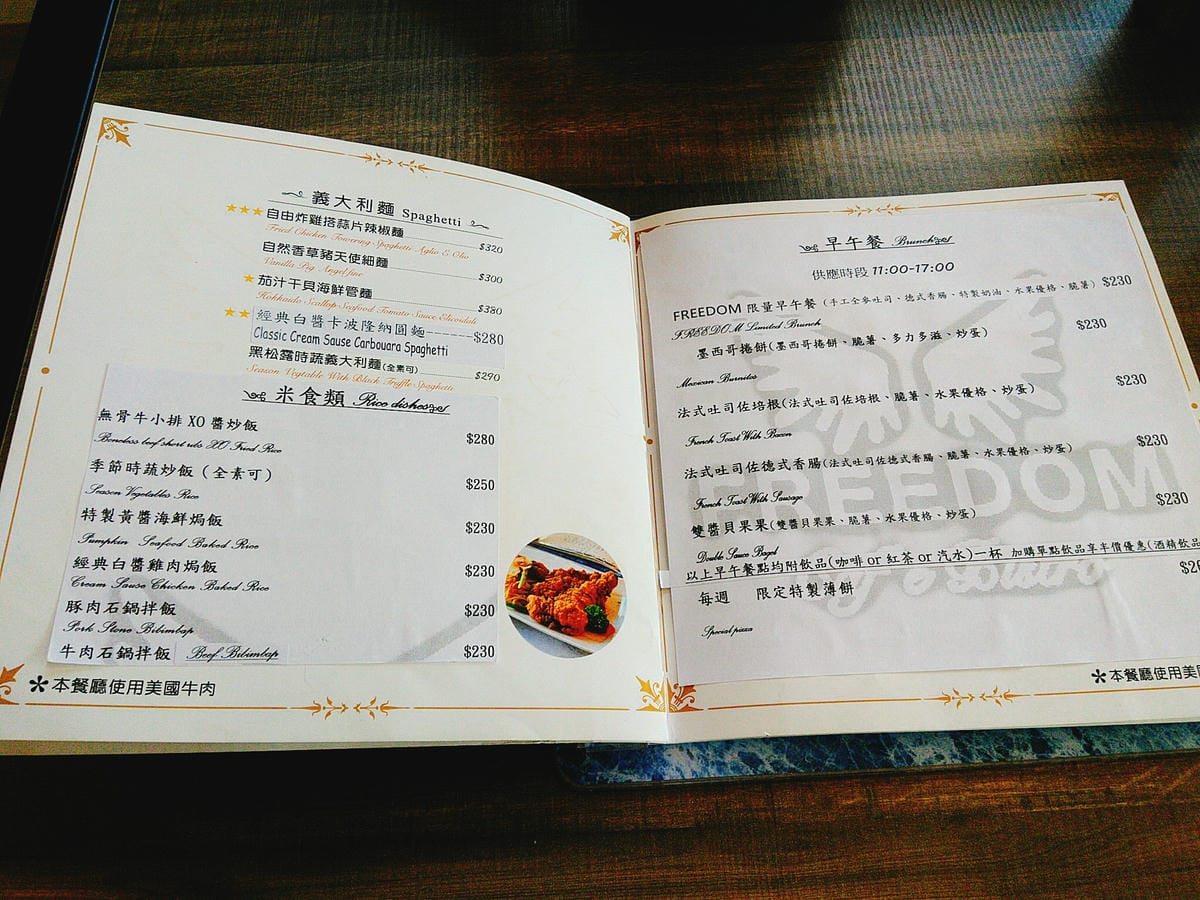 義大利麵 Spaghetti
自由炸雞搭蒜片辣椒麵 $320
Fried Chicken Towering Spaghetti Aglio E Olio
自然香草豬天使細麵 $300
Vanilla Pig Angel fine
茄汁干貝海鮮管麵 $380
Hokkaido Scallop Seafood Tomato Sauce Elicoidali
經典白醬卡波隆納圓麵 $280
Classic Cream Sause Carbouara Spaghetti
黑松露時蔬義大利麵(全素可) $290
Season Vegtable With Black Truffle Spaghetti
米食類 Rice dishes
無骨牛小排 XO 醬炒飯 $280
Boneless beef short ribs XO Fried Rice
季節時蔬炒飯 (全素可) $250
Season Vegetables Rice
特製黃醬海鮮焗飯 $230
Pumpkin Seafood Baked Rice
經典白醬雞肉焗飯 $230
Cream Sause Chicken Baked Rice
豚肉石鍋拌飯 $230
Pork Stone Bibimbap
牛肉石鍋拌飯 Beef Bibimbap $230
*本餐廳使用美國牛肉
早午餐 Brunch
供應時段 11:00-17:00
FREEDOM 限量早午餐 (手工全麥吐司、德式香腸、特製奶油、水果優格、脆薯) $230
FREEDOM Limited Brunch
墨西哥捲餅(墨西哥捲餅、脆薯、多力多滋、炒蛋) $230
Mexican Burnitos
法式吐司佐培根(法式吐司佐培根、脆薯、水果優格、炒蛋) $230
French Toast With Bacon
法式吐司佐德式香腸(法式吐司佐德式香腸、脆薯、水果優格、炒蛋) $230
French Toast With Sausage
雙醬貝果果(雙醬貝果果、脆薯、水果優格、炒蛋) $230
Double Sauce Bagel
以上早午餐點均附飲品(咖啡 or 紅茶 or 汽水)一杯 加購單點飲品享半價優惠(酒精飲品
每週 限定特製薄餅
Special pizza
FREEDOM
*本餐廳使用美